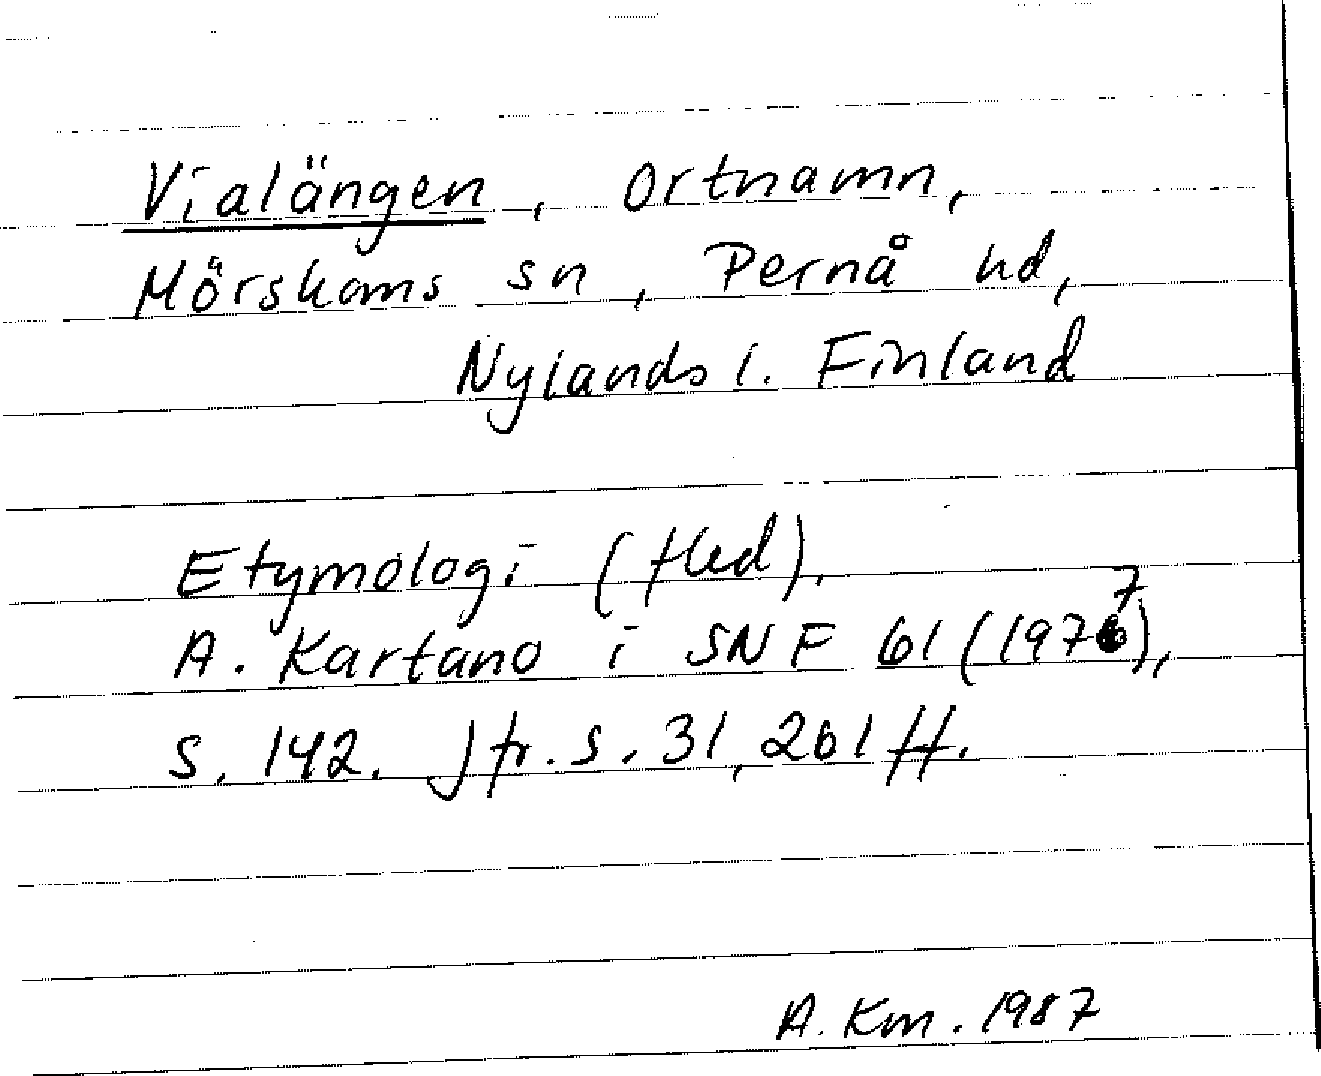 Vialängen, ortnamn,
Mörskoms sn, Pernå hd,
Nylands l. Finland
Etymologi (fled).
A. Kartano i SNF 61 (1977),
s. 142. Jfr. s. 31, 261 ff.
A. Km. 1987